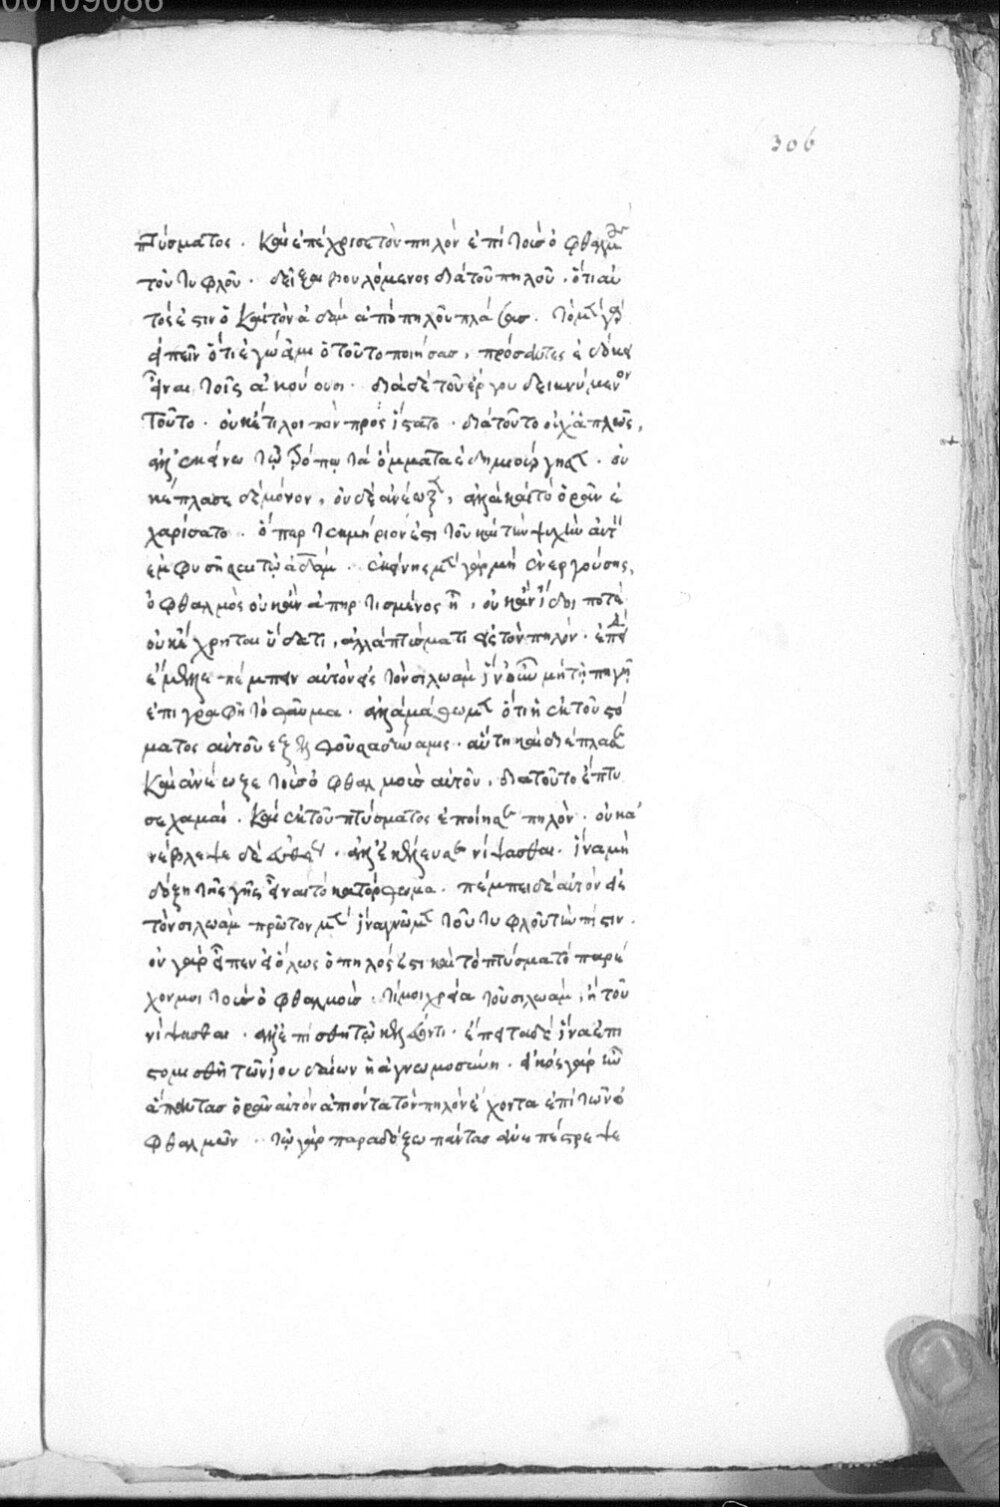 00109086
306
πτύσματος. καὶ ἐπέχρισε τὸν πηλὸν ἐπὶ τοὺς ὀφθαλμοὺς
τοῦ τυφλοῦ. δεῖξαι βουλόμενος διὰ τοῦ πηλοῦ. ὅτι αὐ
τός ἐστιν ὁ καὶ τὸν ἀδὰμ ἀπὸ πηλοῦ πλάσας. τὸ μὲν γὰρ
εἰπεῖν ὅτι ἐγώ εἰμι ὁ τοῦτο ποιήσας, πρόσαντες ἐδόκει
εἶναι τοῖς ἀκούουσι. διὰ δὲ τοῦ ἔργου δεικνύμενον
τοῦτο. οὐκέτι λοιπὸν προσίστατο. διὰ τοῦτο οὐχ ἁπλῶς,
ἀλλ' ἐκείνω τῷ τρόπῳ τὰ ὄμματα ἐδημιούργησε. οὐ
κ ἔπλασε δὲ μόνον, οὐδὲ ἀνέωξε, ἀλλὰ καὶ τὸ ὁρᾶν ἐ
χαρίσατο. ὅπερ τεκμήριόν ἐστι τοῦ καὶ τὴν ψυχὴν αὐτὸν
ἐμφυσῆσαι τῷ ἀδάμ. ἐκείνης μὲν γὰρ μὴ ἐνεργούσης,
ὁ ὀφθαλμὸς οὐκ ἂν ἀπηρτισμένος ἦ, οὐκ ἂν ἴδοι ποτέ.
οὐ κέχρηται ὕδατι, ἀλλὰ πτύσματι εἰς τὸν πηλόν. ἐπειδὴ
ἔμελλε πέμπειν αὐτὸν εἰς τὸν σιλωὰμ ἵν' οὖν μὴ τῇ πηγῇ
ἐπιγραφῆ τὸ θαῦμα. ἀλλὰ μάθωμεν ὅτι ἡ ἐκ τοῦ στό
ματος αὐτοῦ ἐξελθοῦσα δύναμις. αὕτη καὶ διέπλασε
καὶ ἀνέωξε τοὺς ὀφθαλμοὺς αὐτοῦ. διὰ τοῦτο ἔπτυ
σε χαμαί. καὶ ἐκ τοῦ πτύσματος ἐποίησε πηλόν. οὐκ ἀ
νέβλεψε δὲ εὐθὺς. ἀλλ' ἐκέλευσε νίψασθαι. ἵνα μὴ
δόξη τῆς γῆς εἶναι τὸ κατόρθωμα. πέμπει δὲ αὐτὸν εἰς
τὸν σιλωὰμ πρῶτον μὲν ἵνα γνῶμεν τοῦ τυφλοῦ τὴν πίστιν.
οὐ γὰρ εἶπεν εἰ ὅλως ὁ πηλός ἐστι καὶ τὸ πτύσμα τὸ παρέ
χον μοι τοὺς ὀφθαλμοὺς. τί μοι χρεία τοῦ σιλωάμ, ἢ τοῦ
νίψασθαι. ἀλλ' ἐπίσθη τῷ κελεύοντι. ἔπειτα δὲ ἵνα ἐπι
στομισθῆ τῶν ἰουδαίων ἡ ἀγνωμοσύνη. εἰκὸς γὰρ ἦν
ἅπαντας ὁρᾶν αὐτὸν ἀπιόντα τὸν πηλὸν ἔχοντα ἐπὶ τῶν ὀ
φθαλμῶν. τῷ γὰρ παραδόξω πάντας ἂν ἐπέστρεψε